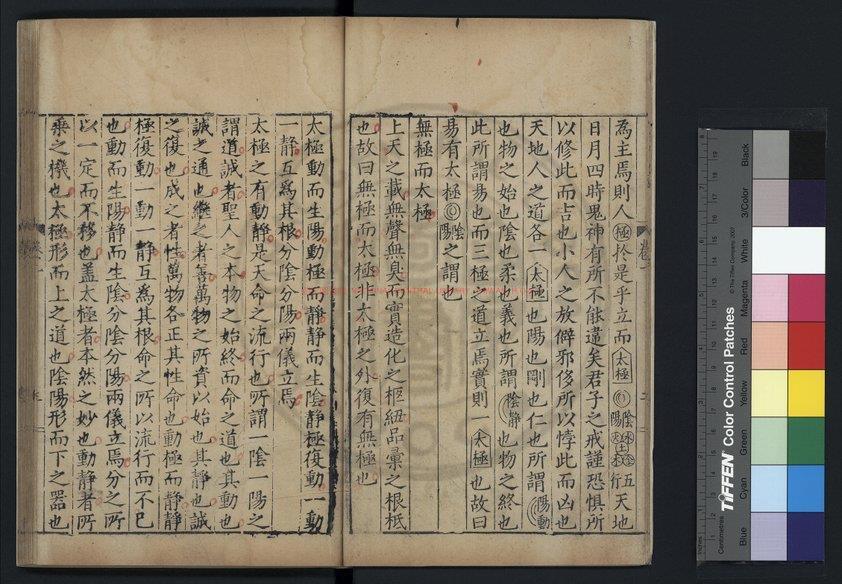 為主焉則人極於是乎立而太極陰陽五行天地
日月四時鬼神有所不能違矣君子之戒謹恐惧所
以修此而吉也小人之放僻邪侈所以悖此而凶也
天地人之道各一太極也陽也剛也仁也所謂陽動
也物之始也陰也柔也義也所謂陰静也物之終也
此所謂易也而三極之道立焉實則一太極也故曰
易有太極陰陽之謂也
無極而太極
上天之載無聲無臭而實造化之樞紐品彙之根柢
也故曰無極而太極非太極之外復有無極也
太極動而生陽動極而静静而生陰静極復動一動
一静互為其根分陰分陽兩儀立焉
太極之有動静是天命之流行也所謂一陰一陽之
謂道誠者聖人之本物之始終而命之道也其動也
誠之通也繼之者善萬物之所資以始也其静也誠
之復也成之者性萬物各正其性命也動極而静静
極復動一動一静互為其根命之所以流行而不已
也動而生陽静而生陰分陰分陽兩儀立焉分之所
以一定而不移也蓋太極者本然之妙也動静者所
乗之機也太極形而上之道也陰陽形而下之器也
TIFFEN Color Control Patches
© The Tiffen Company, 2007
Centimetres
Inches
Blue
Cyan
Green
Yellow
Red
Magenta
White
3/Color
Black